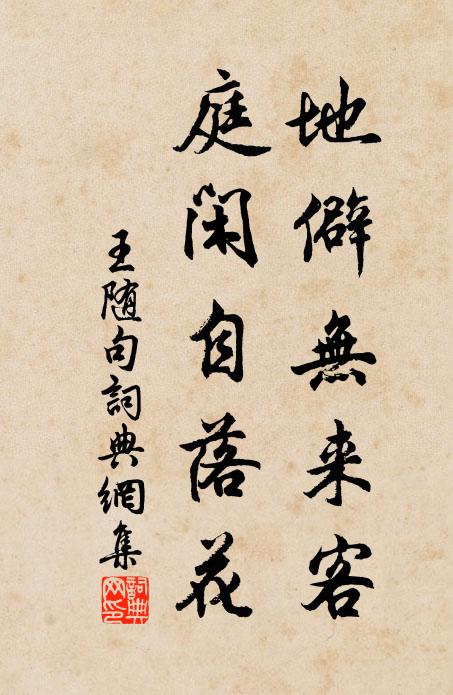 地僻無来客
庭闲自落花
王随句詞典網集
詞典網印